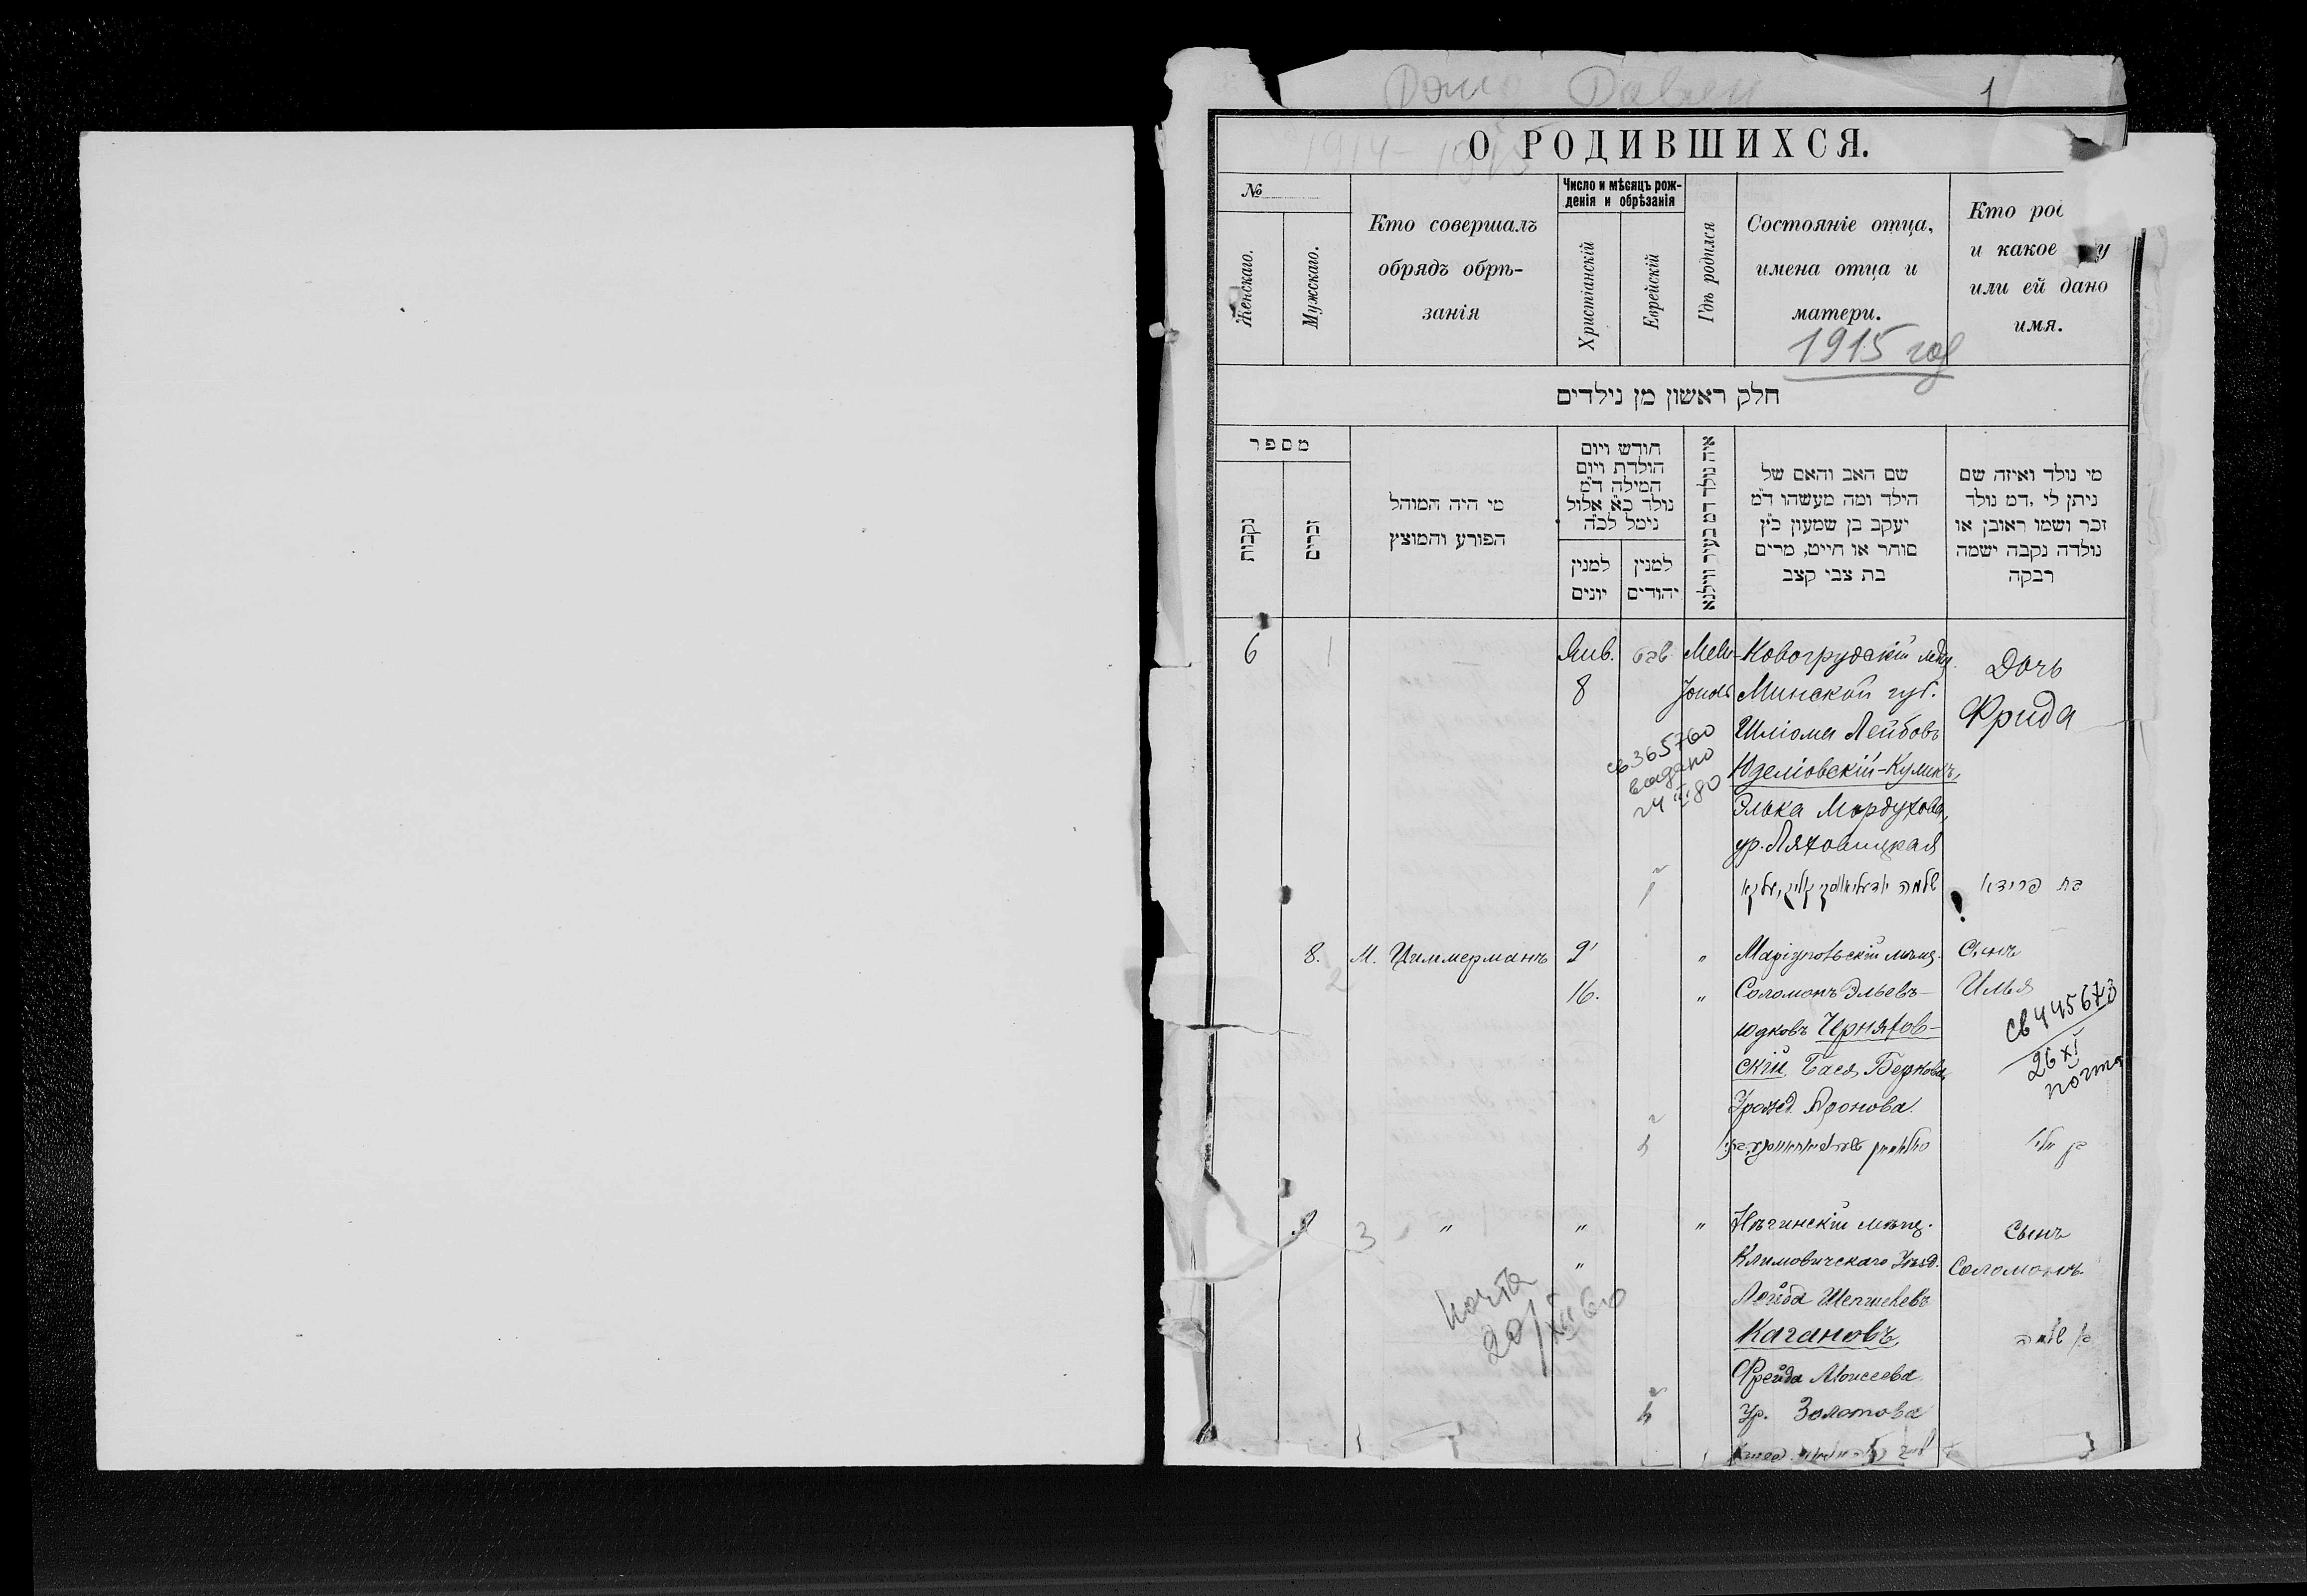 1
О РОДИВШИХСЯ.
1914-1915
№
Женскаго.
Мужсскаго.
Кто совершалъ
обрядъ обрѣ-
занія
Число и мѣсяцъ рож-
денія и обрѣзанія
Христіанскій
Еврейскій
Гдѣ родился
Состояніе отца,
имена отца и
матери.
Кто
и какое
или ей дано
имя.
1915 год
חלק ראשון מן נילדים
מספר
נקבות
זכרים
מי היה המוהל
הפורע והמוצץ
חודש ויום
הולדת ויום
המילה ד״מ
נולד כ״א אלול
נימל לכ״ה
למנין
יונים
למנין
יהודים
איה נולד דמ בעיר ווילנא
שם האב והאם של
הילד ומה מעשהו ד״מ
יעקב בן שמעון כ״ץ
סוחר או חייט, מרים
בת צבי קצב
מי נולד ואיזה שם
ניתן לי, דמ נולד
זכר ושמו ראובן או
נולדה נקבה ישמה
רבקה
6
1
Янв.
8
טבת
Мели-
тополь
Новогрудскій мѣщ.
Минской губ.
Шліома Лейбовъ
Юделіовскій-Куликъ,
Элька Мордухова,
ур. Ляховицкая
Дочь
Фрида
св 365760
выдано
24 II 80
בת פרידא
8.
2
М. Циммерманъ
9
16.
"
"
Маріупольскій мѣщ.
Соломонъ Эльевъ-
Юдковъ Черняхов-
скій, Бася Беркова,
Урожд. Аронова.
Сынъ
Илья
св 445673
26 XI
почта
בן אלי'
3
"
"
"
"
Нѣчинскій мѣщ.
Климовичскаго Уѣзд.
Лейба Шепшелевъ
Кагановъ,
Фрейда Моисеева
Ур. Золотова
Сынъ
Соломонъ
בן שלמה
почта
20/XII 60